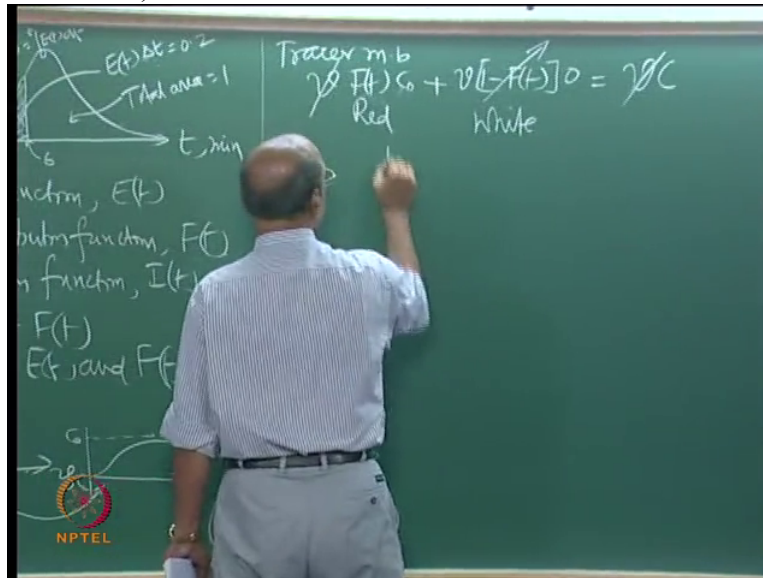 E(t) Δt = 0.2
Total area = 1
6
t, min
unction, E(t)
bution function, F(t)
n function, I(t)
F(t)
E(t, and F(t
C₀
Tracer m.b
v F(t) C₀ + v[1-F(t)] 0 = v C
Red White
NPTEL